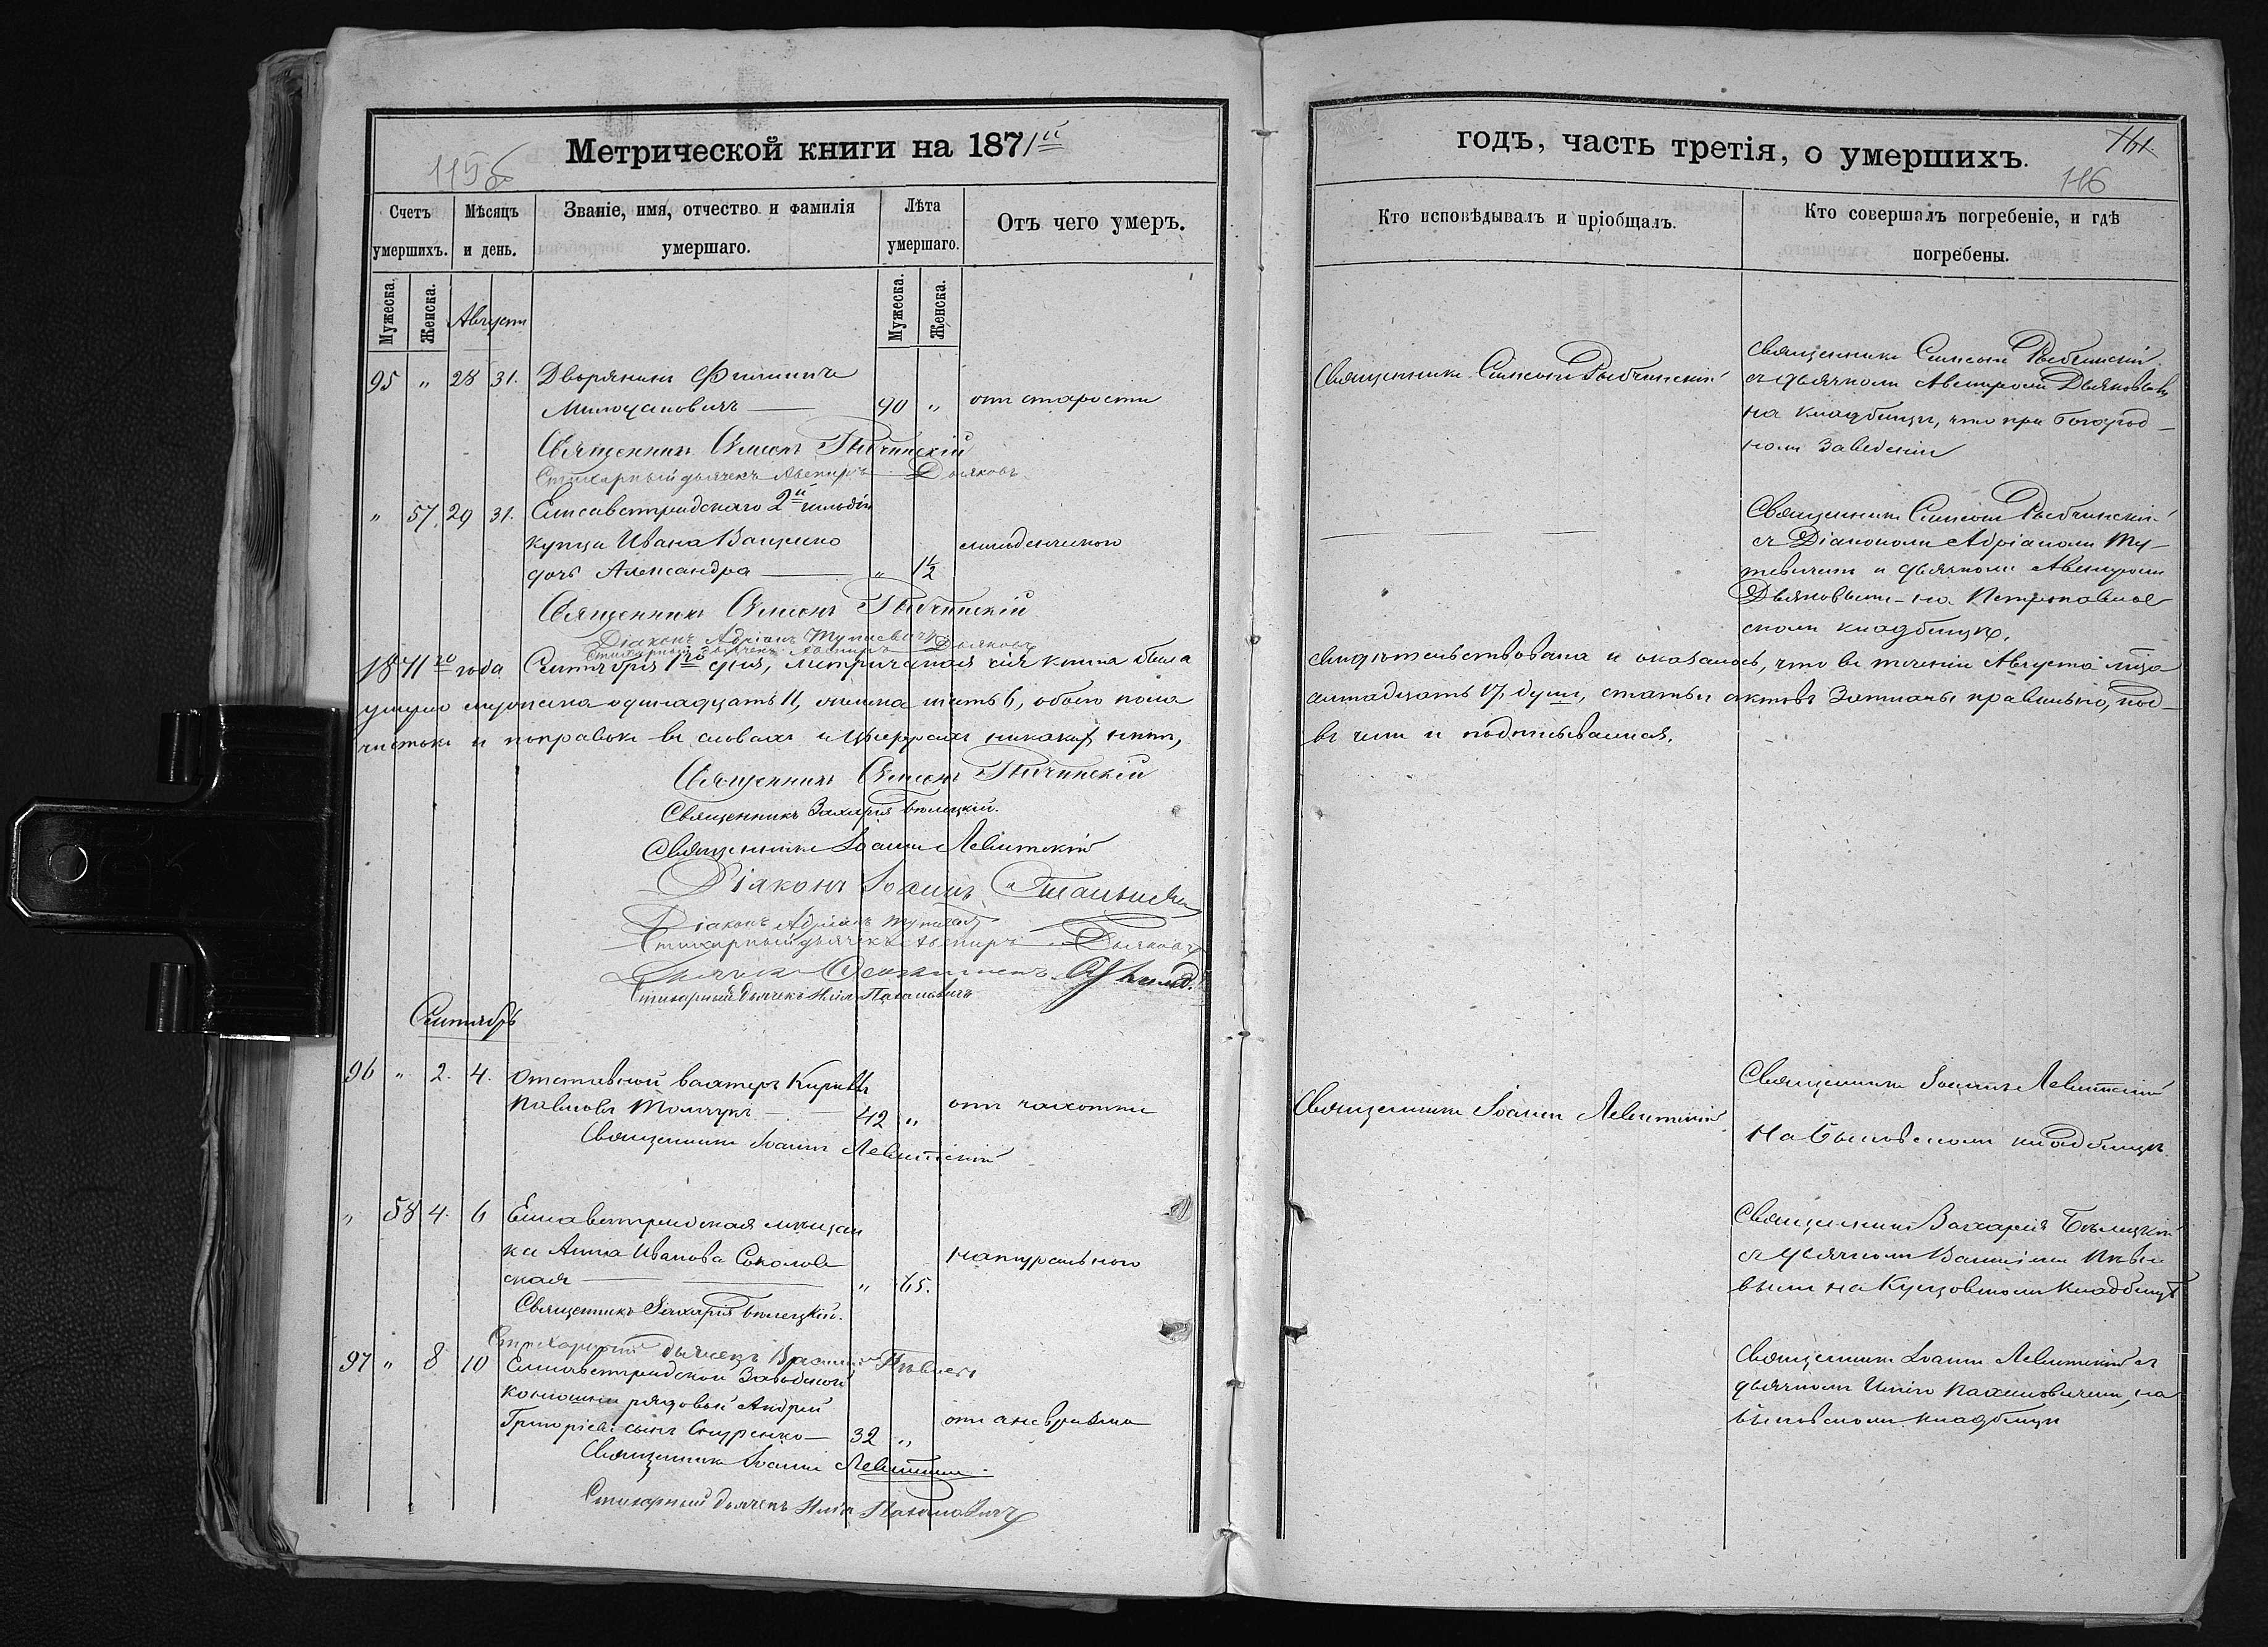 Метрической книги на 1871й
115 б
Счетъ умершихъ.
Мѣсяцъ и день.
Званіе, имя, отчество и фамилія умершаго.
Лѣта умершаго.
Отъ чего умеръ.
Мужеска.
Женска.
Августъ
Мужеска.
Женска.
95 " 28 31. Дворянинъ Филиппъ
90 " отъ старости
Священникъ Симеонъ Рыбчинскій
Стихарный дьячекъ Авениръ Дьяковъ
" 57 29 31. Елисаветградскаго 2й гильдіи
купца Ивана Ващенко
дочь Александра " 1½
Священникъ Симеонъ Рыбчинскій
Діаконъ Адріанъ
Стихарный дьячекъ Авениръ Дьяковъ
1871го года Сентября 1го дня, метрическая сія книга была
умерло мужеска одинадцать 11, женска шесть 6, обоего пола
чистокъ и поправокъ въ словахъ и цыфрахъ никакихъ нѣтъ,
Священникъ Симеонъ Рыбчинскій
Священникъ Захарія Бѣлецкій.
Священникъ Іоаннъ Левитскій
Діаконъ Іоаннъ
Діаконъ Адріанъ
Стихарный дьячекъ Авениръ Дьяковъ
Дьячекъ
Стихарный дьячекъ Илія Пахаловичъ
Сентябрь
96 " 2. 4. Отставной вахтеръ Кириллъ
Павловъ 42 " отъ чахотки
Священникъ Іоаннъ Левитскій
" 58 4. 6 Елисаветградская мѣщан
ка Анна Иванова Соколов
ская " 65. натурально
Священникъ Захарія Бѣлецкій.
Стихарный дьячекъ Василій
97 " 8 10 Елисаветградской Заводской
конюшни рядовый Андрей
Григорьевъ сынъ 32 " отъ аневризма
Священникъ Іоаннъ Левитскій
Стихарный дьячекъ Илія Пахаловичъ
годъ, часть третія, о умершихъ.
116
Кто исповѣдывалъ и пріобщалъ.
Кто совершалъ погребеніе, и гдѣ погребены.
Священникъ Симеонъ Рыбчинскій
Священникъ Симеонъ Рыбчинскій
съ дьячкомъ Авениромъ Дьяковымъ
на кладбищѣ, что при Богоугод-
номъ Заведеніи
Священникъ Симеонъ Рыбчинскій
съ Діакономъ Адріаномъ
и дьячкомъ Авениромъ
Дьяковымъ на Петропавлов
скомъ кладбищѣ.
свидѣтельствована и оказалось, что въ теченіи Августа м҃ца
семнадцать 17 душъ, статьи актовъ записаны правильно, под-
въ чемъ и подписываемся.
Священникъ Іоаннъ Левитскій
Священникъ Іоаннъ Левитскій
На Быковскомъ кладбищѣ
Священникъ Захарія Бѣлецкій
съ дьячкомъ Василіемъ
на Кущовскомъ кладбищѣ
Священникъ Іоаннъ Левитскій съ
дьячкомъ Иліею Пахаловичемъ, на
Быковскомъ кладбищѣ